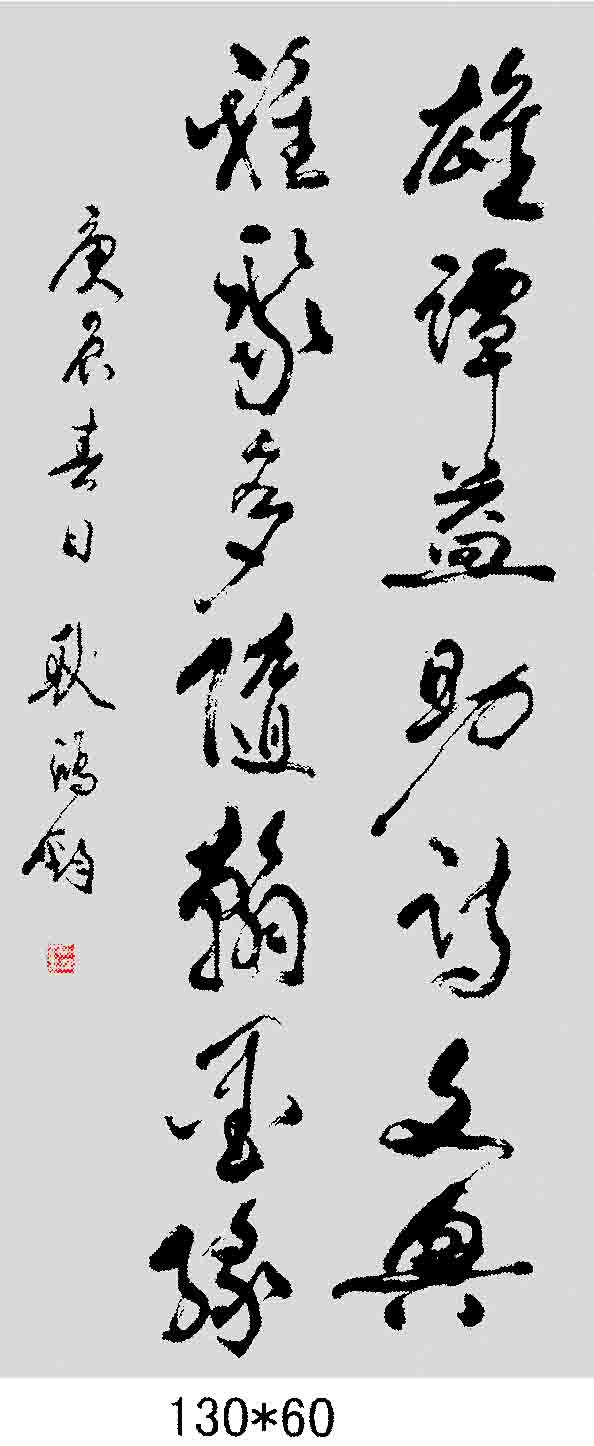 雄譚益助詩文興
雅聚多隨翰墨緣
庚辰春日 耿鴻鈞
130*60